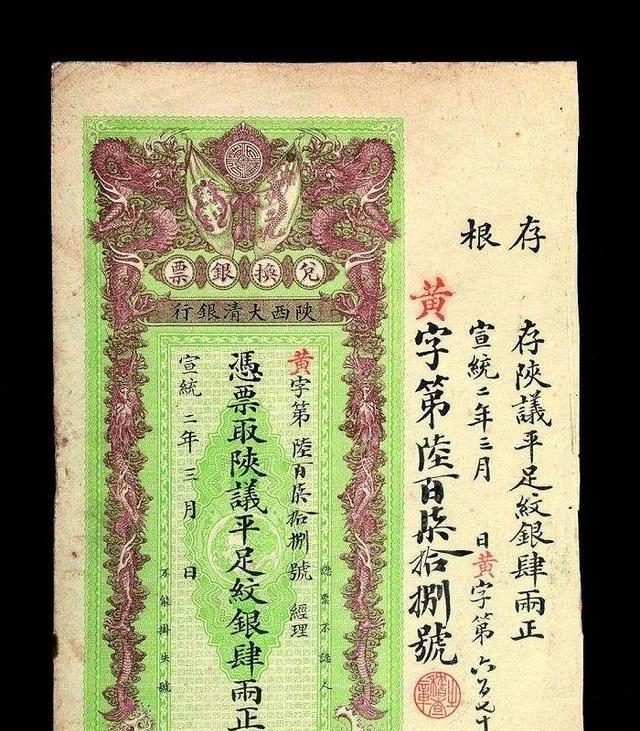 存根
存陝議平足紋銀肆兩正
宣統二年三月 日黄字第六百七十
黄字第陸百柒拾捌號
兌換銀票
陝西大清銀行
黄字第陸百柒拾捌號 經理
認票不認人
憑票取陝議平足紋銀肆兩正
宣統二年三月 日
不能掛失號